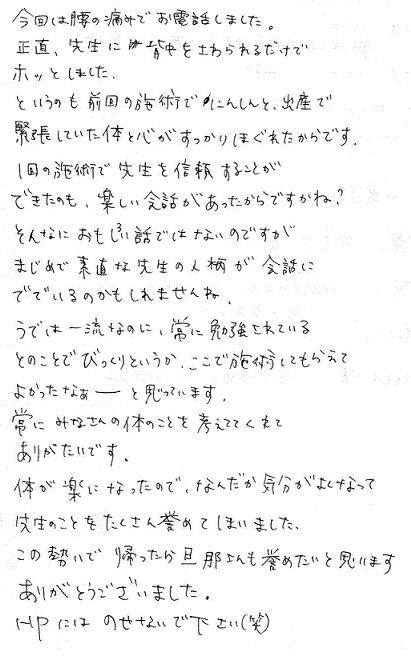 今回は腰の痛みでお電話しました。
正直、先生に背中をさわられるだけで
ホッとしました。
というのも前回の施術でにんしんと、出産で
緊張していた体と心がすっかりほぐれたからです。
1回の施術で先生を信頼することが
できたのも、楽しい会話があったからですかね？
そんなにおもしろい話ではないのですが
まじめで素直な先生の人柄が会話に
でているのかもしれませんね。
うでは一流なのに、常に勉強されている
とのことでびっくりというか、ここで施術してもらえて
よかったなぁーと思っています。
常にみなさんの体のことを考えててくれて
ありがたいです。
体が楽になったので、なんだか気分がよくなって
先生のことをたくさん誉めてしまいました。
この勢いで帰ったら旦那さんも誉めたいと思います
ありがとうございました。
HPにはのせないで下さい(笑)